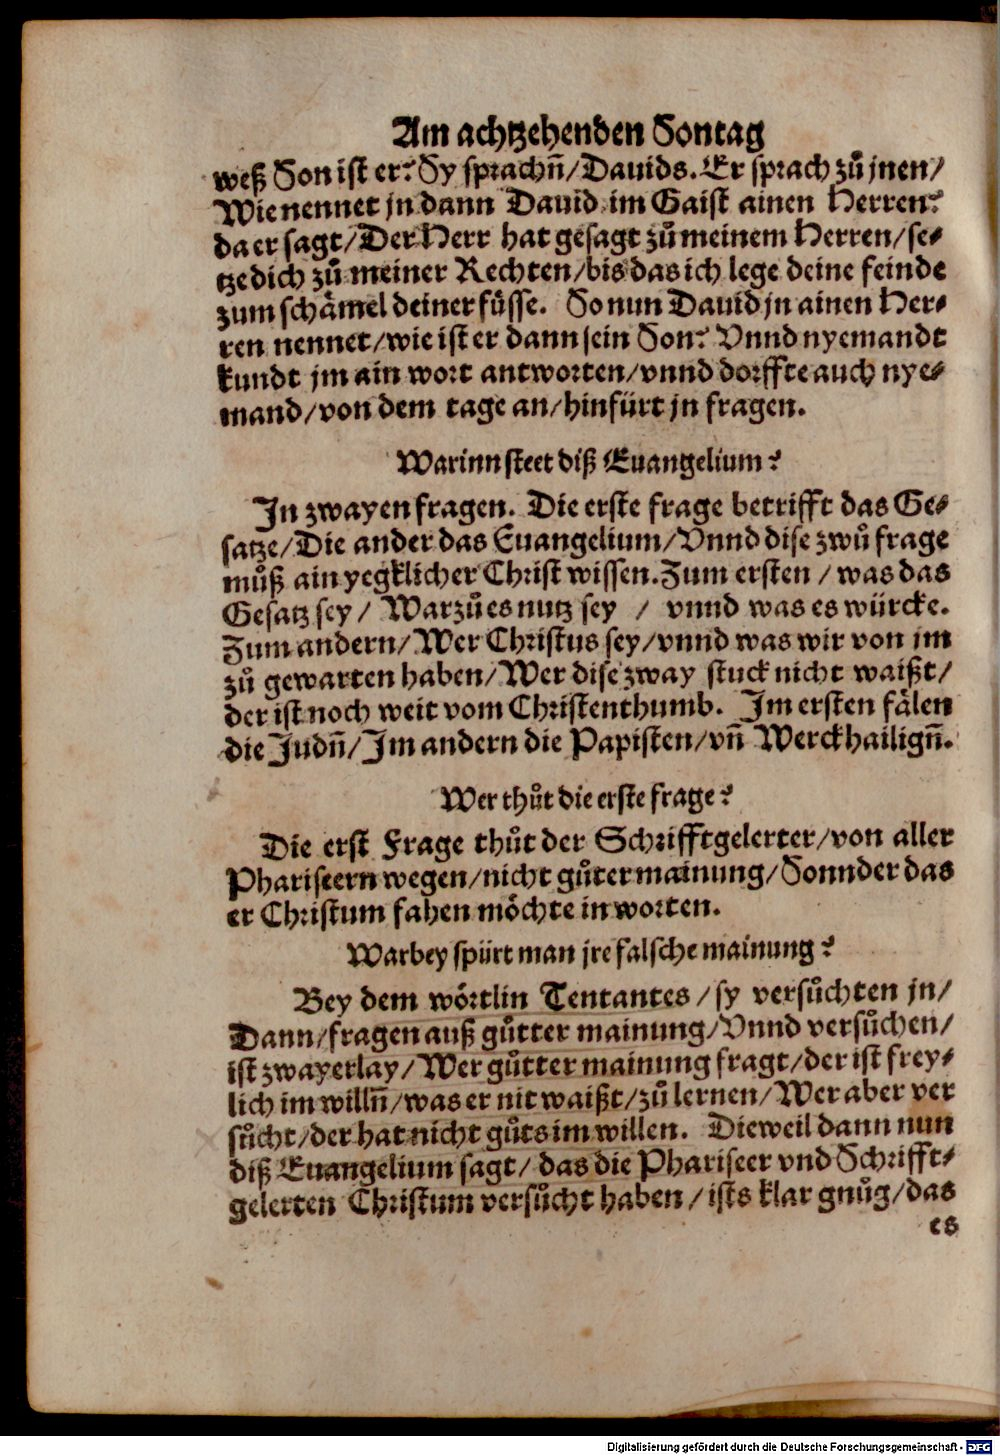 Am achtzehenden Sontag
weß Son ist er? Sy sprachñ/Dauids. Er sprach zů jnen/
Wie nennet jn dann Dauid im Gaist ainen Herren?
da er sagt/Der Herr hat gesagt zů meinem Herren/se-
tze dich zů meiner Rechten/bis das ich lege deine feinde
zum schämel deiner füsse. So nun Dauid jn ainen Her-
ren nennet/wie ist er dann sein Son? Vnnd nyemandt
kundt jm ain wort antworten/vnnd dorffte auch nye-
mand/von dem tage an/hinfürt jn fragen.
Warinn steet diß Euangelium?
In zwayen fragen. Die erste frage betrifft das Ge-
satze/Die ander das Euangelium/Vnnd dise zwů frage
můß ain yegklicher Christ wissen. Zum ersten / was das
Gesatz sey / Warzů es nutz sey / vnnd was es würcke.
Zum andern/Wer Christus sey/vnnd was wir von im
zů gewarten haben/Wer dise zway stuck nicht waißt/
der ist noch weit vom Christenthumb. Im ersten fälen
die Judñ/Im andern die Papisten/vñ Werckhailigñ.
Wer thůt die erste frage?
Die erst Frage thůt der Schrifftgelerter/von aller
Phariseern wegen/nicht gůter mainung/Sonnder das
er Christum fahen möchte in worten.
Warbey spürt man jre falsche mainung?
Bey dem wörtlin Tentantes / sy versůchten jn/
Dann/fragen auß gůtter mainung/Vnnd versůchen/
ist zwayerlay/Wer gůtter mainung fragt/der ist frey-
lich im willñ/was er nit waißt/zů lernen/Wer aber ver
sůcht/der hat nicht gůts im willen. Dieweil dann nun
diß Euangelium sagt/das die Phariseer vnd Schrifft-
gelerten Christum versůcht haben/ists klar gnůg/das
es
Digitalisierung gefördert durch die Deutsche Forschungsgemeinschaft - DFG